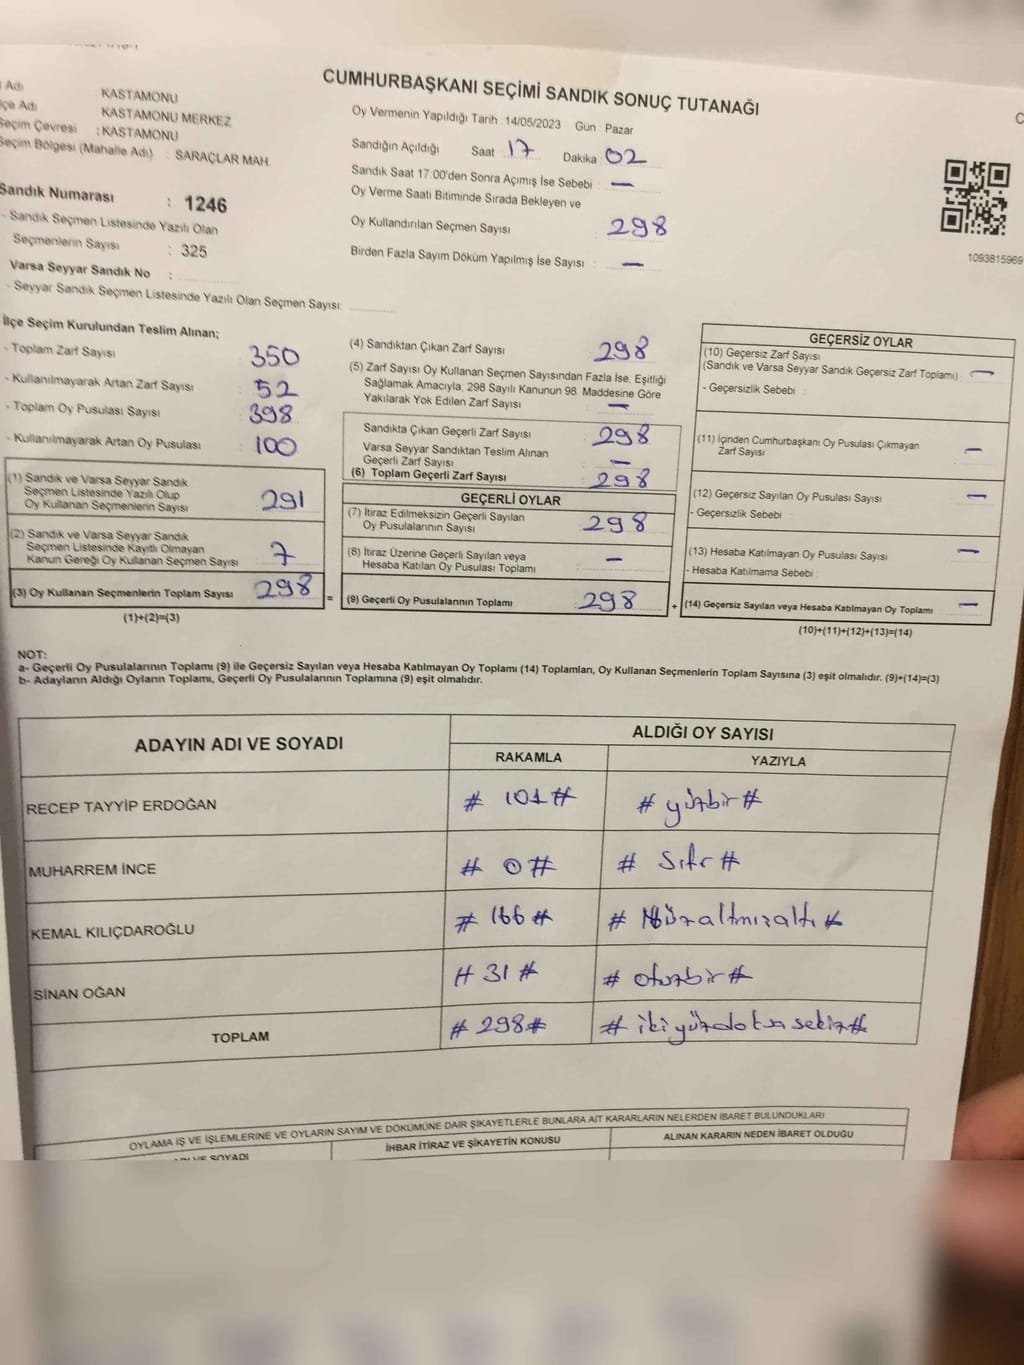 CUMHURBAŞKANI SEÇİMİ SANDIK SONUÇ TUTANAĞI
Adı KASTAMONU
Adı KASTAMONU MERKEZ
Seçim Çevresi : KASTAMONU
Seçim Bölgesi (Mahalle Adı) : SARAÇLAR MAH
Sandık Numarası : 1246
- Sandık Seçmen Listesinde Yazılı Olan
Seçmenlerin Sayısı : 325
Varsa Seyyar Sandık No :
- Seyyar Sandık Seçmen Listesinde Yazılı Olan Seçmen Sayısı:
Oy Vermenin Yapıldığı Tarih : 14/05/2023 Gün : Pazar
Sandığın Açıldığı Saat 17 Dakika 02
Sandık Saat 17:00'den Sonra Açımış İse Sebebi : —
Oy Verme Saati Bitiminde Sırada Bekleyen ve
Oy Kullandırılan Seçmen Sayısı : 298
Birden Fazla Sayım Döküm Yapılmış İse Sayısı : —
1093815969
İlçe Seçim Kurulundan Teslim Alınan;
- Toplam Zarf Sayısı 350
- Kullanılmayarak Artan Zarf Sayısı 52
- Toplam Oy Pusulası Sayısı 398
- Kullanılmayarak Artan Oy Pusulası 100
(1) Sandık ve Varsa Seyyar Sandık
Seçmen Listesinde Yazılı Olup
Oy Kullanan Seçmenlerin Sayısı 291
(2) Sandık ve Varsa Seyyar Sandık
Seçmen Listesinde Kayıtlı Olmayan
Kanun Gereği Oy Kullanan Seçmen Sayısı 7
(3) Oy Kullanan Seçmenlerin Toplam Sayısı 298 =
(1)+(2)=(3)
(4) Sandıktan Çıkan Zarf Sayısı 298
(5) Zarf Sayısı Oy Kullanan Seçmen Sayısından Fazla İse, Eşitliği
Sağlamak Amacıyla; 298 Sayılı Kanunun 98. Maddesine Göre
Yakılarak Yok Edilen Zarf Sayısı —
Sandıkta Çıkan Geçerli Zarf Sayısı 298
Varsa Seyyar Sandıktan Teslim Alınan
Geçerli Zarf Sayısı —
(6) Toplam Geçerli Zarf Sayısı 298
GEÇERLİ OYLAR
(7) İtiraz Edilmeksizin Geçerli Sayılan
Oy Pusulalarının Sayısı 298
(8) İtiraz Üzerine Geçerli Sayılan veya
Hesaba Katılan Oy Pusulası Toplamı —
(9) Geçerli Oy Pusulalarının Toplamı 298 +
GEÇERSİZ OYLAR
(10) Geçersiz Zarf Sayısı
(Sandık ve Varsa Seyyar Sandık Geçersiz Zarf Toplamı) —
- Geçersizlik Sebebi :
(11) İçinden Cumhurbaşkanı Oy Pusulası Çıkmayan
Zarf Sayısı —
(12) Geçersiz Sayılan Oy Pusulası Sayısı —
- Geçersizlik Sebebi :
(13) Hesaba Katılmayan Oy Pusulası Sayısı —
- Hesaba Katılmama Sebebi :
(14) Geçersiz Sayılan veya Hesaba Katılmayan Oy Toplamı —
(10)+(11)+(12)+(13)=(14)
NOT:
a- Geçerli Oy Pusulalarının Toplamı (9) ile Geçersiz Sayılan veya Hesaba Katılmayan Oy Toplamı (14) Toplamları, Oy Kullanan Seçmenlerin Toplam Sayısına (3) eşit olmalıdır. (9)+(14)=(3)
b- Adayların Aldığı Oyların Toplamı, Geçerli Oy Pusulalarının Toplamına (9) eşit olmalıdır.
ADAYIN ADI VE SOYADI
ALDIĞI OY SAYISI
RAKAMLA YAZIYLA
RECEP TAYYİP ERDOĞAN # 101 # # yüzbir #
MUHARREM İNCE # 0 # # Sıfır #
KEMAL KILIÇDAROĞLU # 166 # # Yüzaltmışaltı #
SİNAN OĞAN # 31 # # otuzbir #
TOPLAM # 298 # # ikiyüzdoksansekiz #
OYLAMA İŞ VE İŞLEMLERİNE VE OYLARIN SAYIM VE DÖKÜMÜNE DAİR ŞİKAYETLERLE BUNLARA AİT KARARLARIN NELERDEN İBARET BULUNDUKLARI
VE SOYADI İHBAR İTİRAZ VE ŞİKAYETİN KONUSU ALINAN KARARIN NEDEN İBARET OLDUĞU